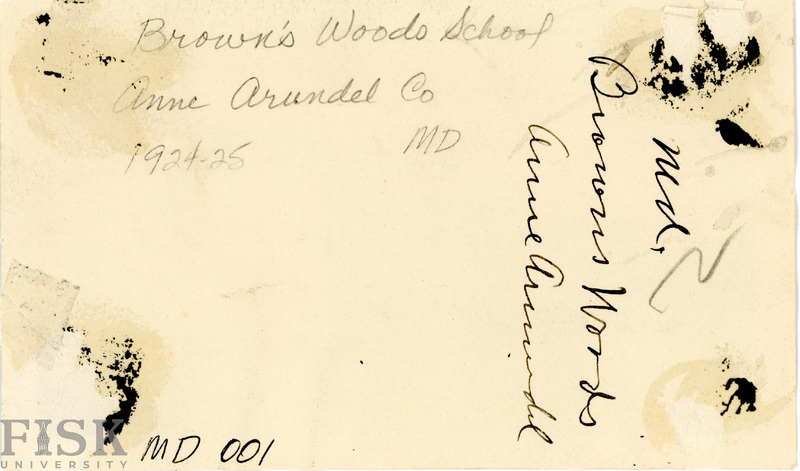 Brown's Woods School
Anne Arundel Co
1924-25 MD
Md.
Browns Woods
Anne Arundel
MD 001
FISK
UNIVERSITY